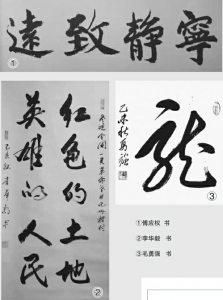 遠致静寧
①
红色的土地
英雄的人民
②
龙
乙未秋
③
①傅应权 书
②李华毅 书
③毛勇强 书